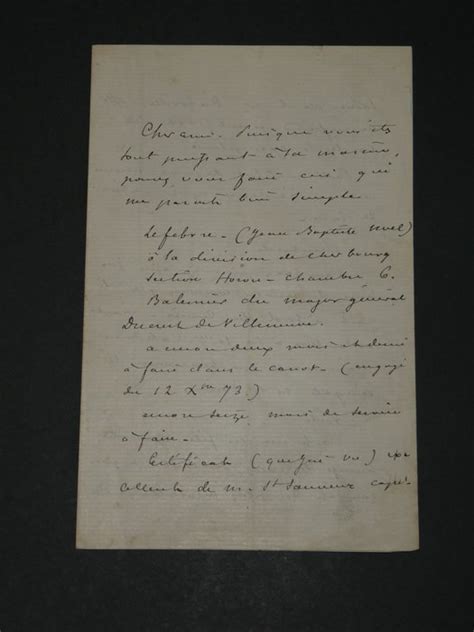 Cher ami. Puisque vous êtes
tout puissant à la marine,
pouvez vous faire ceci qui
me paraît bien simple
Lefebvre - (Jean Baptiste Noel)
à la division de Cherbourg
section - Chambre 6.
Baleinier du major général
Ducrest de Villeneuve.
a encore deux mois et demi
à faire dans le canot - (engagé
du 12 Xbre 73)
encore seize mois de service
à faire -
Certificat (que j'ai vu) ex
cellent de M. St Sauveur